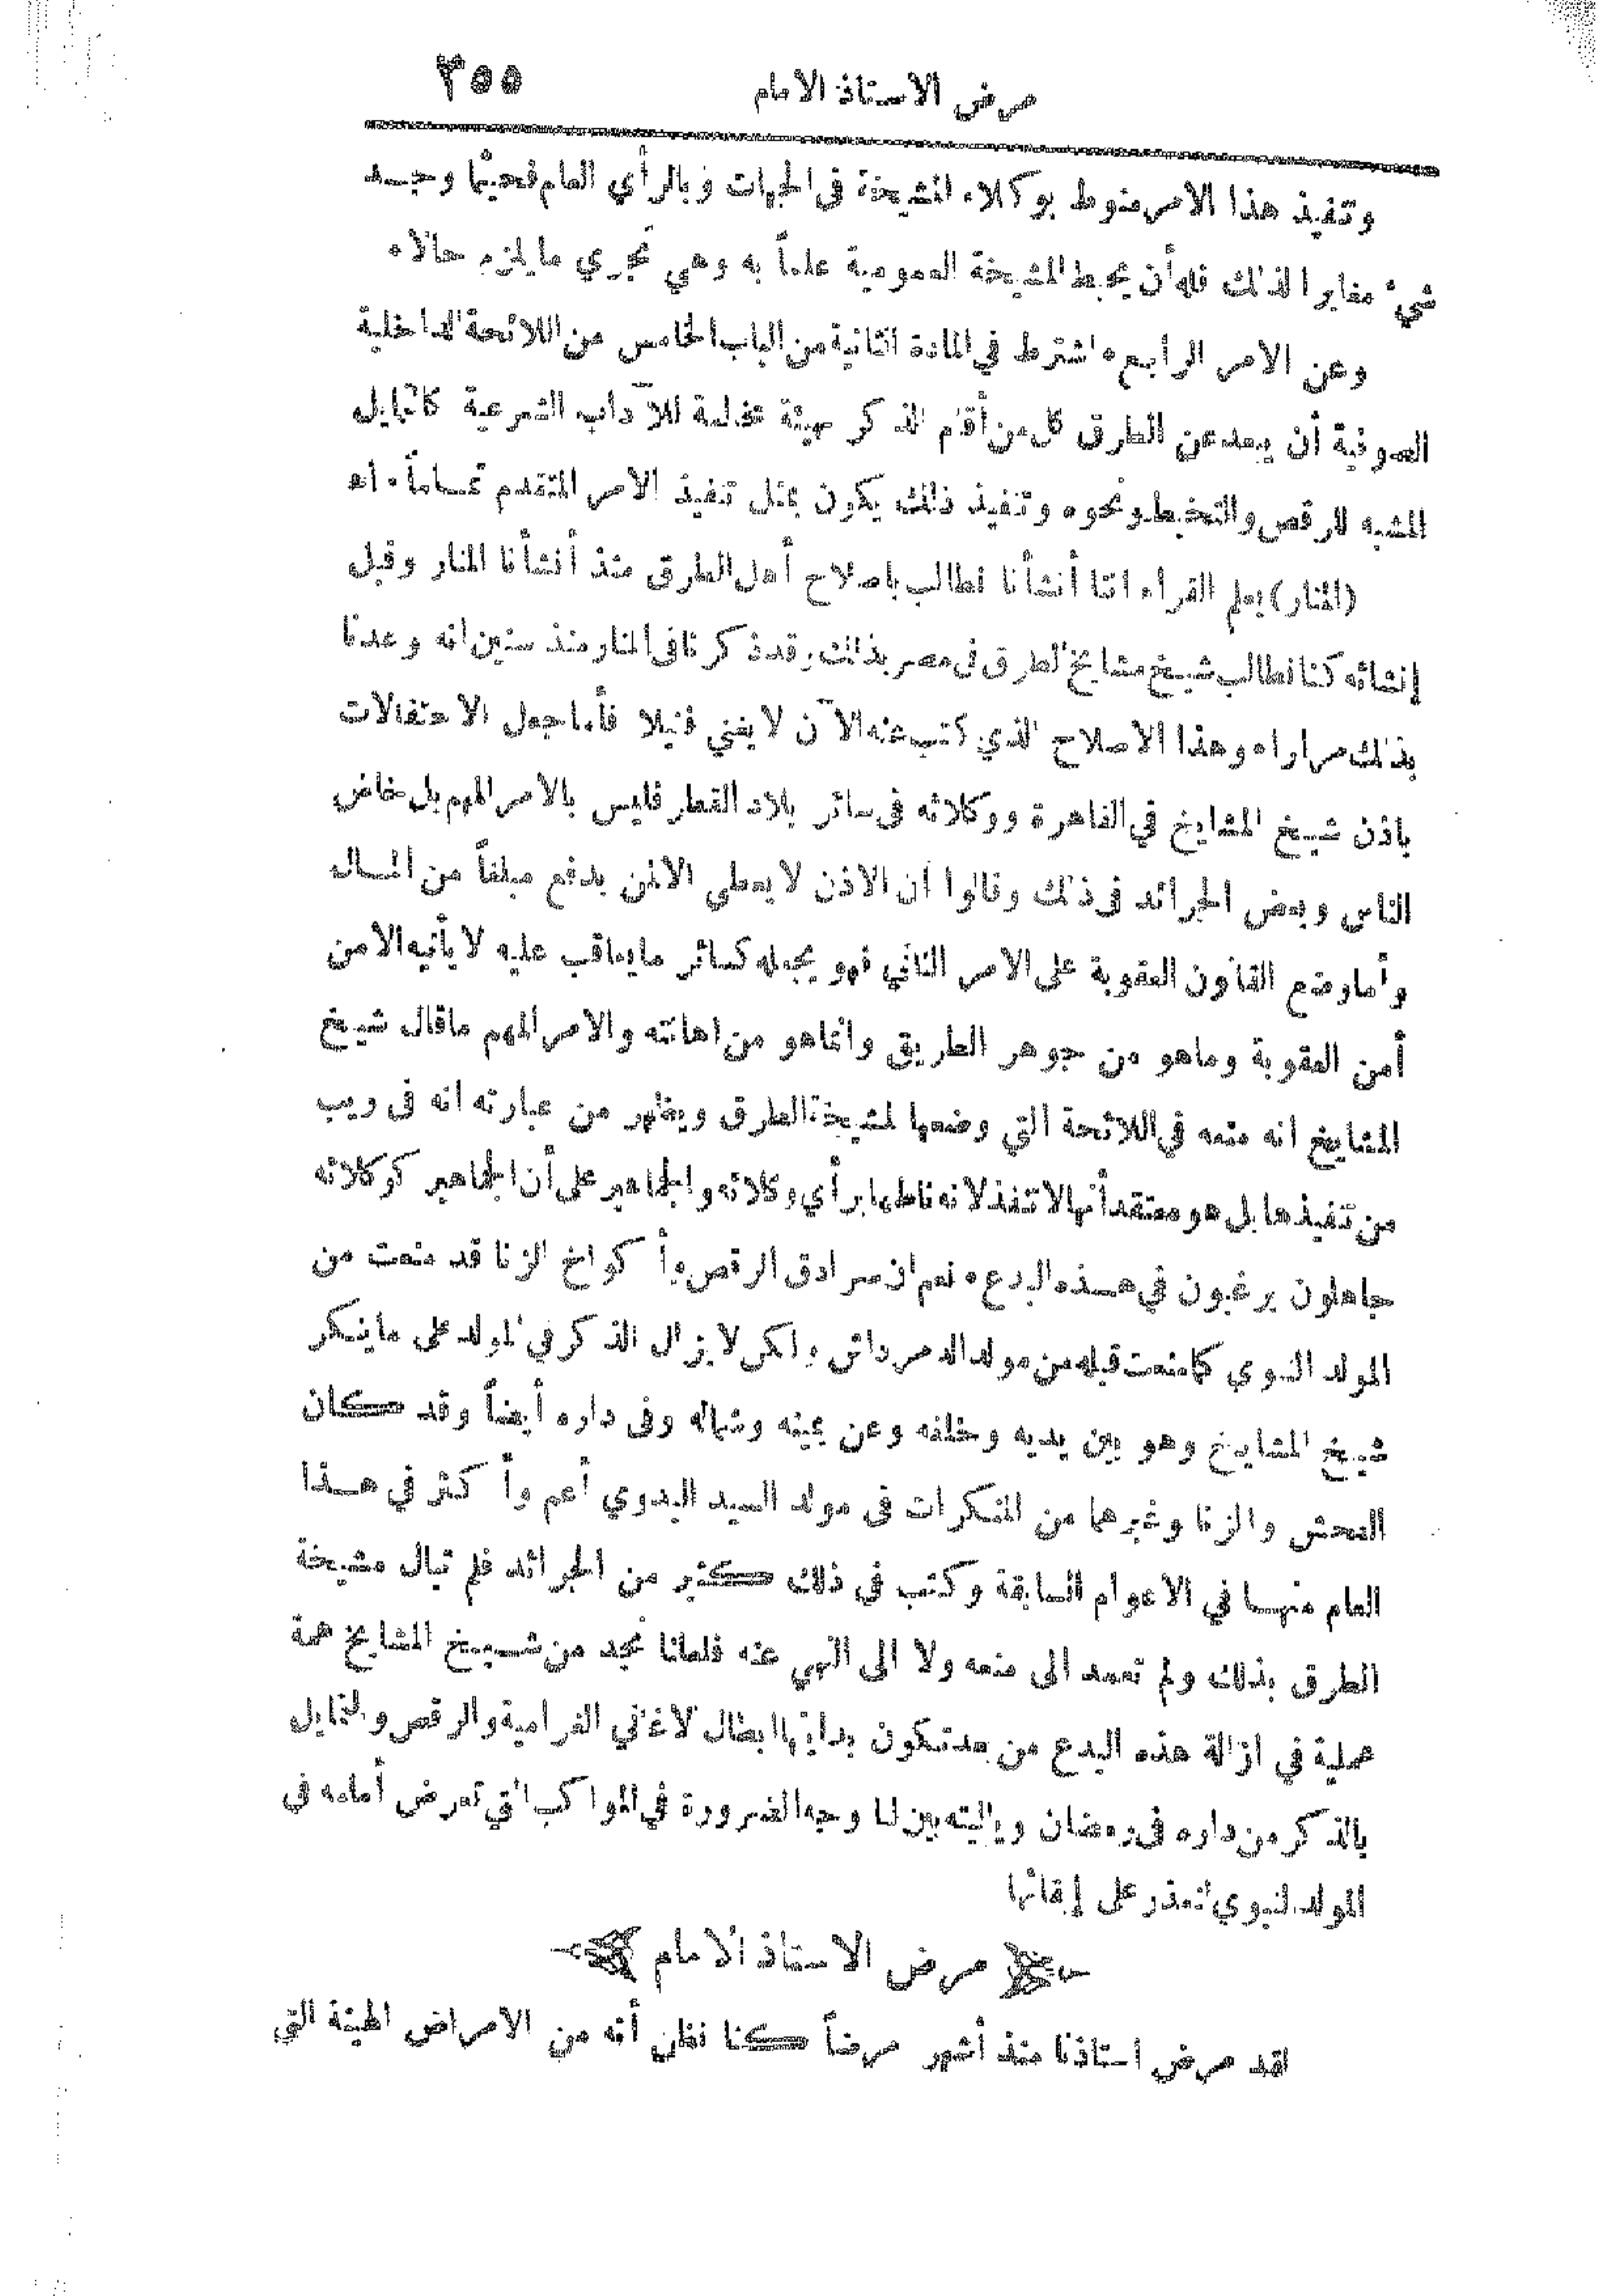 مرض الاستاذ الامام ٣٥٥
وتنفيذ هذا الامر منوط بوكلاء المشيخة في الجهات وبالرأي العام فحيثما وجد
شيء مغاير الذلك فله أن يحيط المشيخة العمومية علماً به وهي تجري مايلزم حالا ٠
وعن الامر الرابع ٠ اشترط في المادة الثانية من الباب الخامس من اللائحة الداخلية
الصوفية أن يبعد عن الطرق كل من أقام الذكر بهيئة مخالفة للآداب الشرعية كالتمايل
المشبه للرقص والتخبط ونحوه وتنفيذ ذلك يكون بمثل تنفيذ الامر المتقدم تماماً ٠ اه
(المنار) يعلم القراء اننا أنشأنا نطالب باصلاح أهل الطرق منذ أنشأنا المنار وقبل
إنشائه كنا نطالب شيخ مشايخ الطرق في مصر بذلك وقد ذكرنا في المنار منذ سنين انه وعدنا
بذلك مراراً ٠ وهذا الاصلاح الذي كتب عنه الآن لا يغني فتيلا فأما جعل الاحتفالات
باذن شيخ المشايخ في القاهرة ووكلائه في سائر بلاد القطر فليس بالامر المهم بل خاض
الناس وبعض الجرائد في ذلك وقالوا ان الاذن لا يعطى الا لمن يدفع مبلغاً من المال
وأما وضع القانون العقوبة على الامر الثاني فهو يجعله كسائر مايعاقب عليه لا يأتيه الا من
أمن العقوبة وماهو من جوهر الطريق وانماهو من اهانته والامر المهم ماقال شيخ
المشايخ انه منعه في اللائحة التي وضعها لمشيخة الطرق ويظهر من عبارته انه في ريب
من تنفيذها بل هو معتقد أنها لا تنفذ لانه ناطها برأي وكلائه والجماهير على أن الجماهير كوكلائه
جاهلون يرغبون في هذه البدع ٠ نعم ان سرادق الرقص وأكواخ الزنا قد منعت من
المولد النبوي كما منعت قبله من مولد الدمرداش ولكن لا يزال الذكر في المولد على ماينكر
شيخ المشايخ وهو بين يديه وخلفه وعن يمينه وشماله وفي داره أيضاً وقد كان
الفحش والزنا وغيرهما من المنكرات في مولد السيد البدوي أعم وأكثر في هذا
العام منها في الاعوام السابقة وكتب في ذلك كثير من الجرائد فلم تبال مشيخة
الطرق بذلك ولم تعمد الى منعه ولا الى النهي عنه فلعلنا نجد من شيخ المشايخ همة
عملية في ازالة هذه البدع من بعد تكون بدايتها ابطال الاغاني الغرامية والرقص والتمايل
بالذكر من داره في رمضان وياليته يبين لنا وجه الضرورة في المواكب التي تعرض أمامه في
المولد النبوي لنعذر على إبقائها
مرض الاستاذ الامام
لقد مرض استاذنا منذ أشهر مرضاً كنا نظن أنه من الامراض الهينة التي